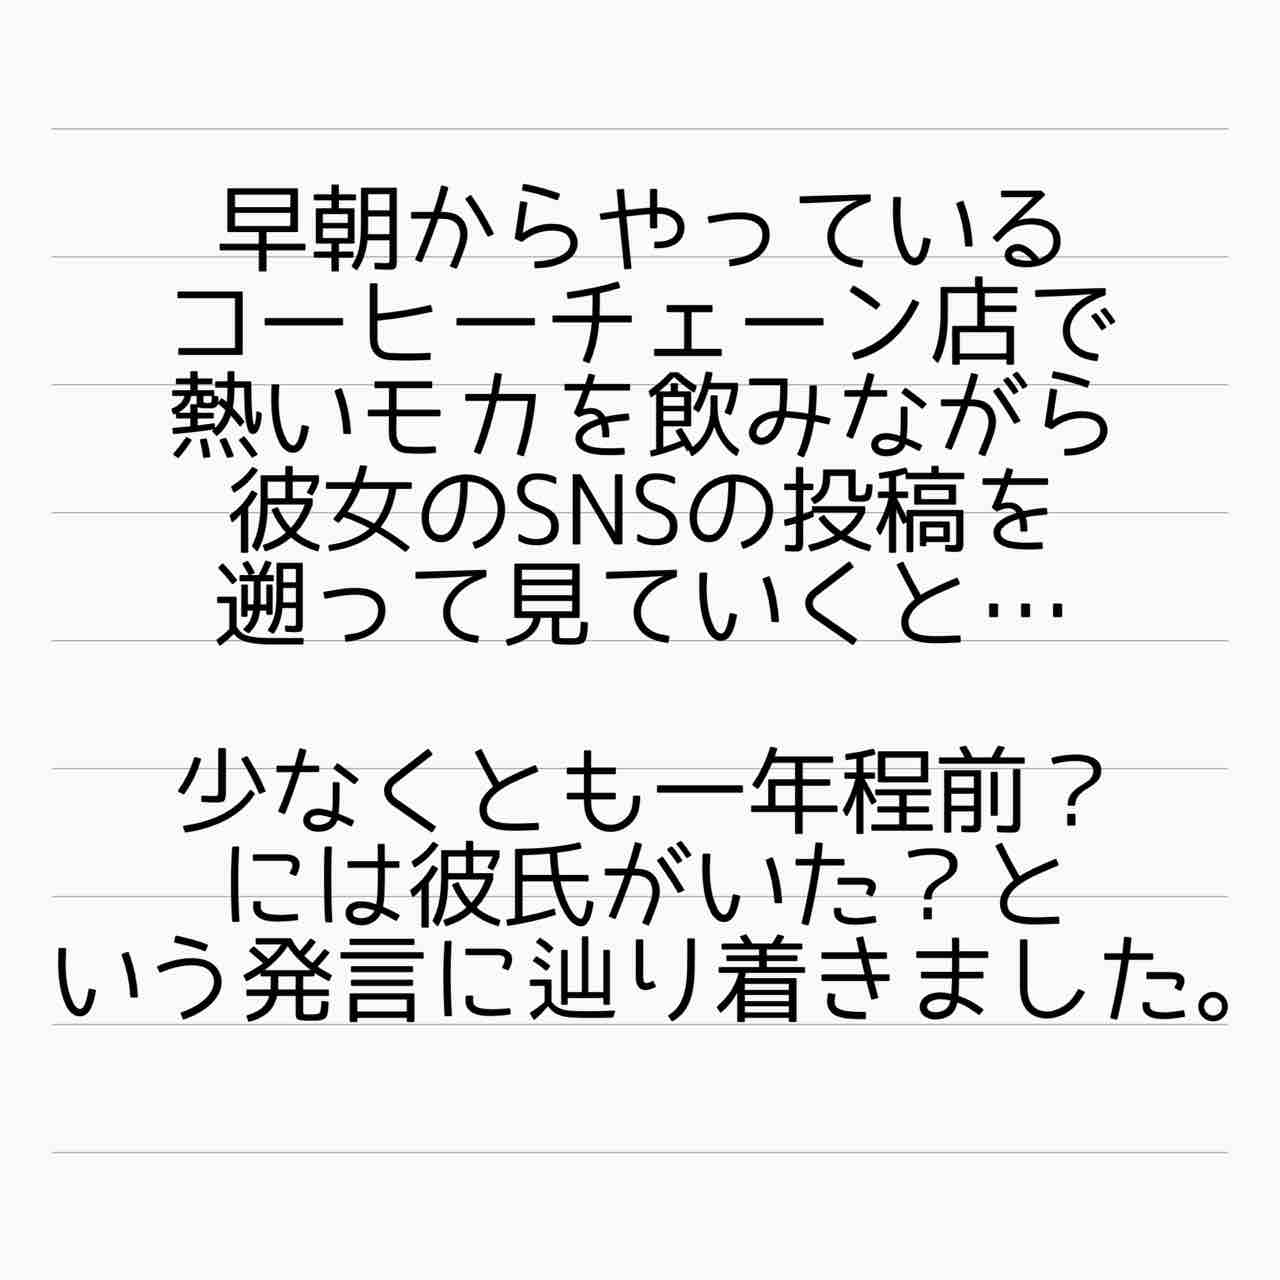 早朝からやっている
コーヒーチェーン店で
熱いモカを飲みながら
彼女のSNSの投稿を
遡って見ていくと…
少なくとも一年程前？
には彼氏がいた？と
いう発言に辿り着きました。